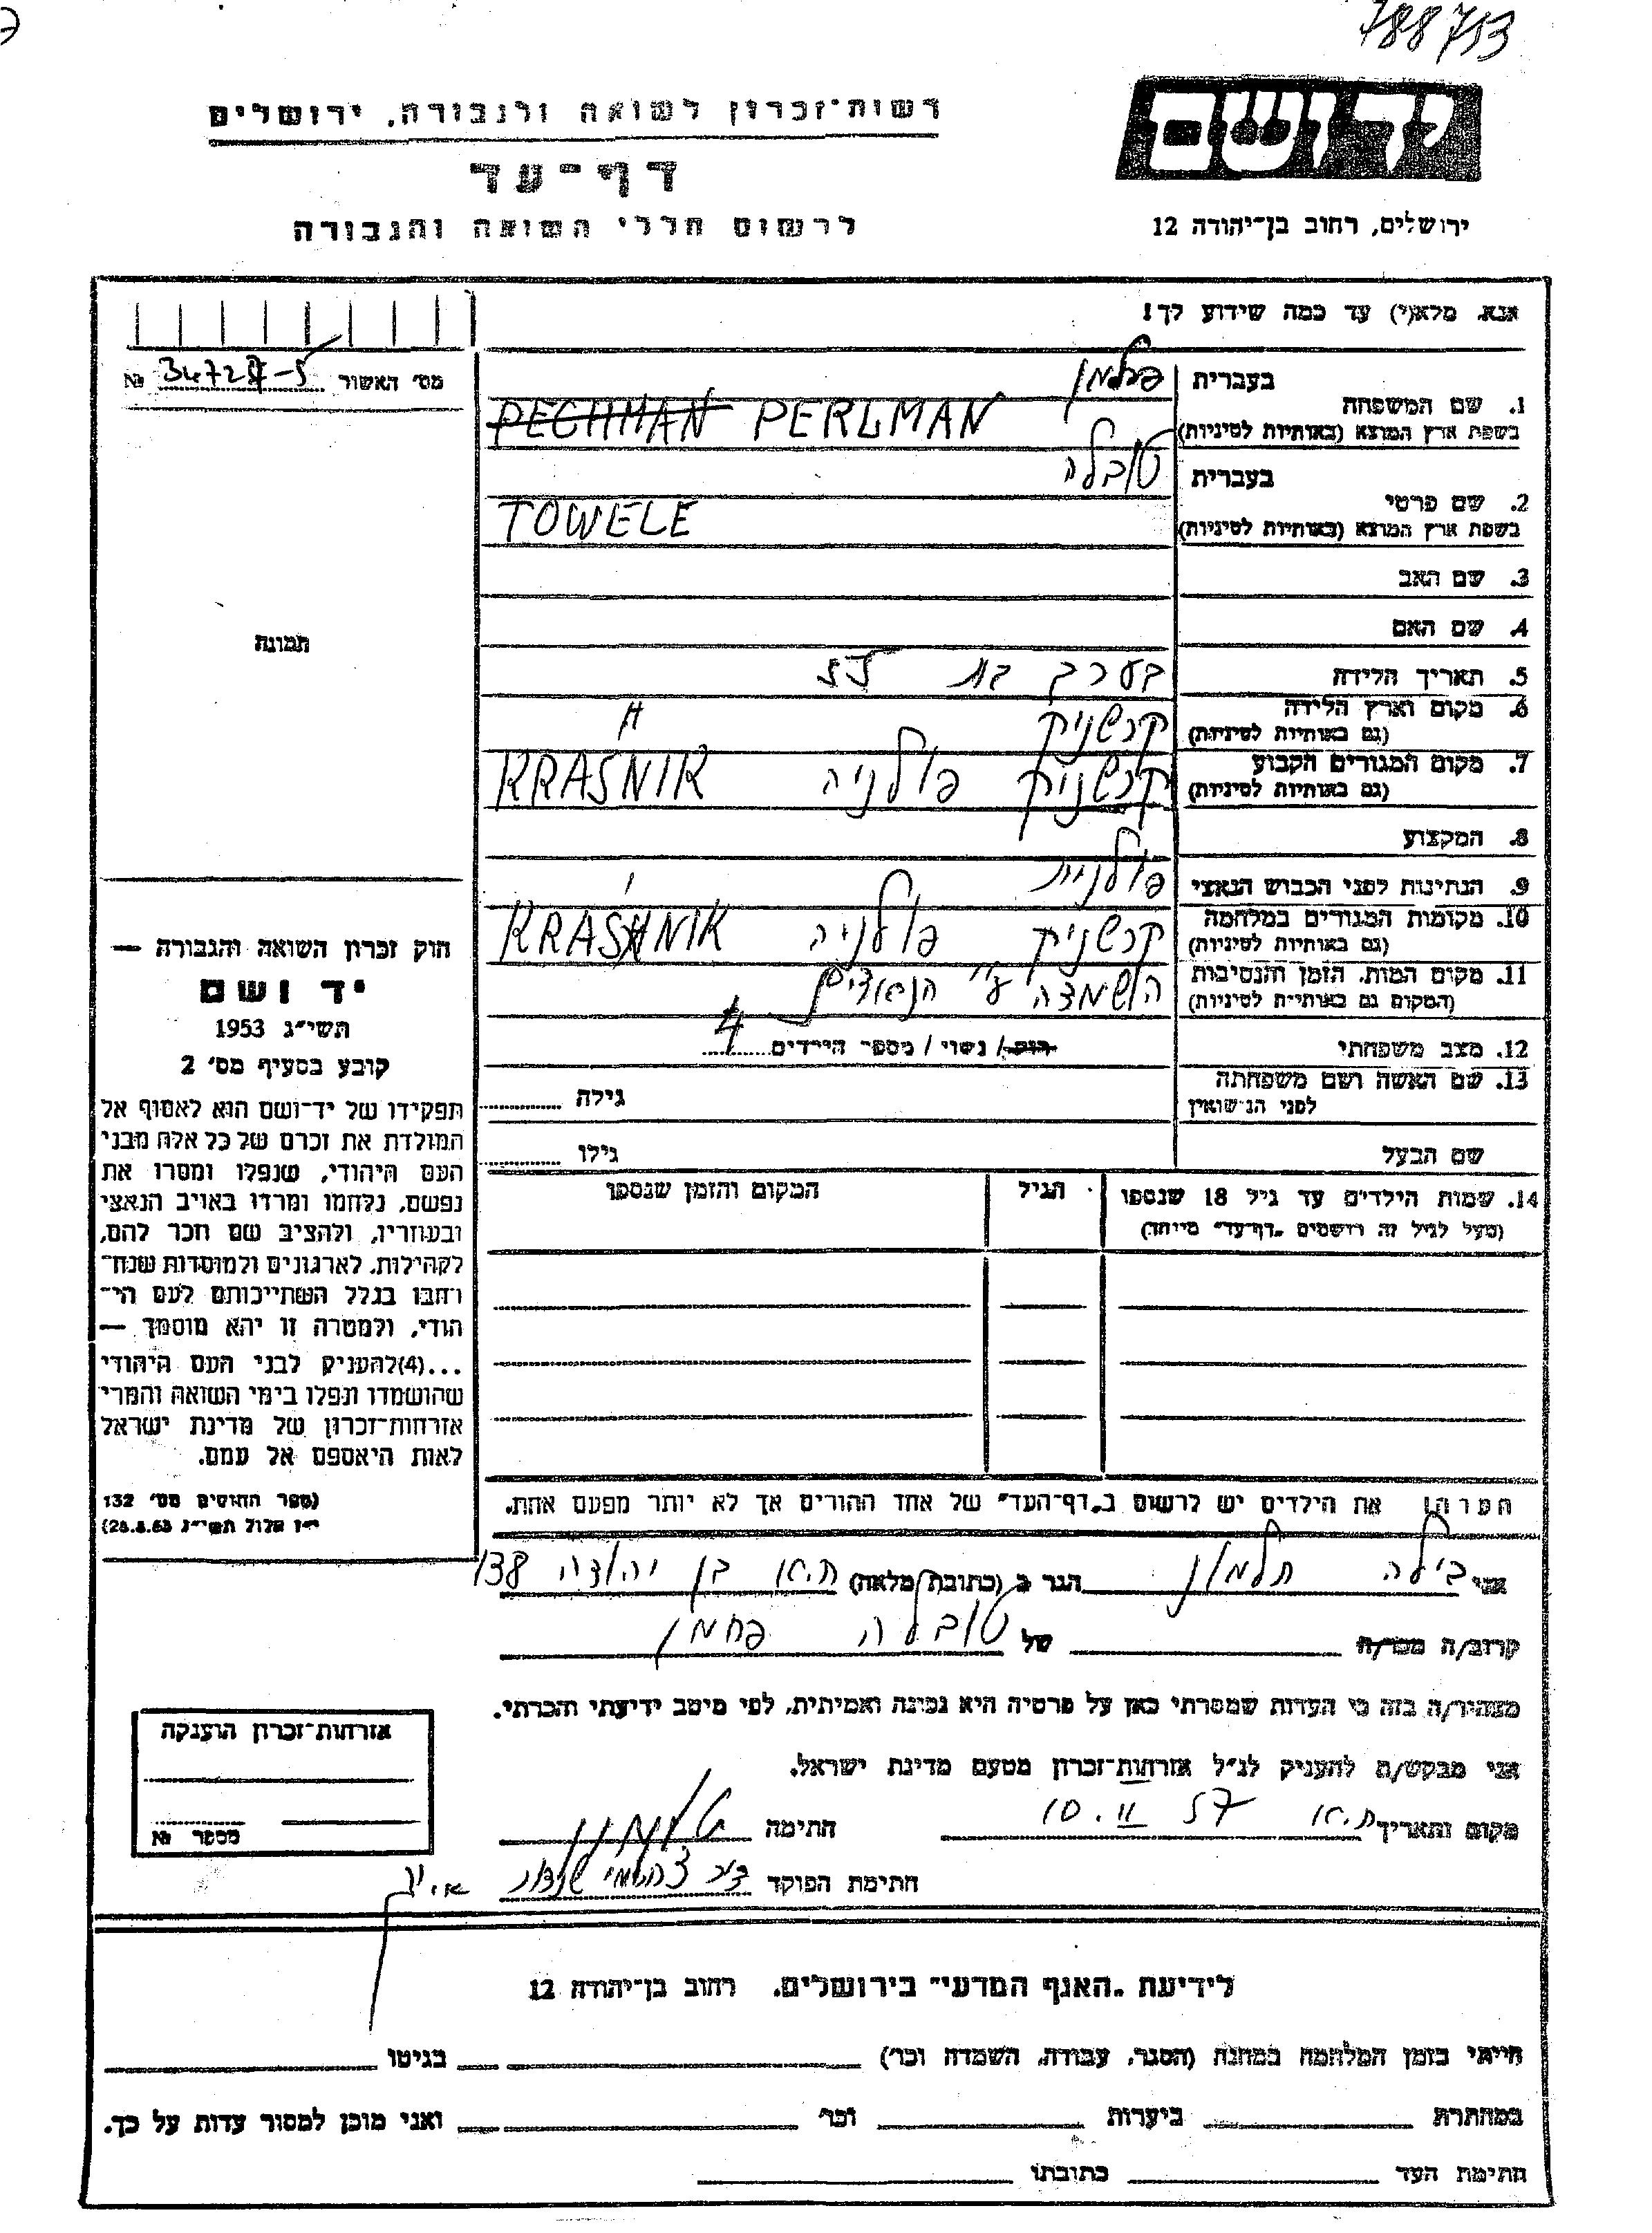 788753
רשות־זכרון לשואה ולגבורה, ירושלים
יד ושם
דף־עד
לרשום חללי השואה והגבורה
ירושלים, רחוב בן־יהודה 12
אנא, מלא(י) עד כמה שידוע לך!
מס' האשור № 34727-5
1. שם המשפחה בעברית פרלמן
בשפת ארץ המוצא (באותיות לטיניות) PECHMAN PERLMAN
2. שם פרטי בעברית טובלה
בשפת ארץ המוצא (באותיות לטיניות) TOWELE
3. שם האב
4. שם האם
תמונה
5. תאריך הלידה בערך בת 55
6. מקום וארץ הלידה קרשניק "
(גם באותיות לטיניות)
7. מקום המגורים הקבוע קרשניק פולניה KRASNIK
(גם באותיות לטיניות)
8. המקצוע
9. הנתינות לפני הכבוש הנאצי פולנית
10. מקומות המגורים במלחמה קרשניק פולניה KRASHNIK
(גם באותיות לטיניות)
11. מקום המות, הזמן והנסיבות הושמדה ע"י הנאצים
(המקום גם באותיות לטיניות)
12. מצב משפחתי רווק / נשוי / מספר הילדים 4
13. שם האשה ושם משפחתה גילה
לפני הנישואין
שם הבעל גילו
14. שמות הילדים עד גיל 18 שנספו הגיל המקום והזמן שנספו
(מעל לגיל זה רושמים "דף־עד" מיוחד)
חוק זכרון השואה והגבורה —
יד ושם
תשי"ג 1953
קובע בסעיף מס' 2
תפקידו של יד־ושם הוא לאסוף אל
המולדת את זכרם של כל אלה מבני
העם היהודי, שנפלו ומסרו את
נפשם, נלחמו ומרדו באויב הנאצי
ובעוזריו, ולהציב שם וזכר להם,
לקהילות, לארגונים ולמוסדות שנח־
רחבו בגלל השתייכותם לעם הי־
הודי, ולמטרה זו יהא מוסמך —
...(4) להעניק לבני העם היהודי
שהושמדו ונפלו בימי השואה והמרי
אזרחות־זכרון של מדינת ישראל
לאות היאספם אל עמם.
(ספר החוקים מס' 132
י"ז אלול תשי"ג 28.8.53)
הערה! את הילדים יש לרשום ב"דף־העד" של אחד ההורים אך לא יותר מפעם אחת.
אני בילה תלמון הגר ב (כתובת מלאה) ת.א בן יהודה 138
קרוב/ה מכר/ה של טובלה פחמן
מצהיר/ה בזה כי העדות שמסרתי כאן על פרטיה היא נכונה ואמיתית, לפי מיטב ידיעתי והכרתי.
אני מבקש/ת להעניק לנ"ל אזרחות־זכרון מטעם מדינת ישראל.
מקום ותאריך ת.א 10.II 57 חתימה
חתימת הפוקד
אזרחות־זכרון הוענקה
מספר №
לידיעת "האגף המדעי" בירושלים, רחוב בן־יהודה 12
הייתי בזמן המלחמה במחנה (הסגר, עבודה, השמדה וכו') בגיטו
במחתרת ביערות וכו' ואני מוכן למסור עדות על כך.
חתימת העד כתובתו